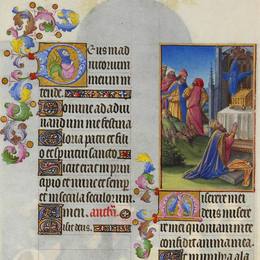 Deus in ad
iutorium
meum in
tende.
Domine ad adiu
uandum me festina
Gloria patri et fili
o et spiritui sancto
Sicut erat in prin
cipio et nunc et semp
et in secula seculorum.
Amen.
Miserere mei
deus misere
re mei quoniam in te
confidit anima mea.
Et in umbra ala